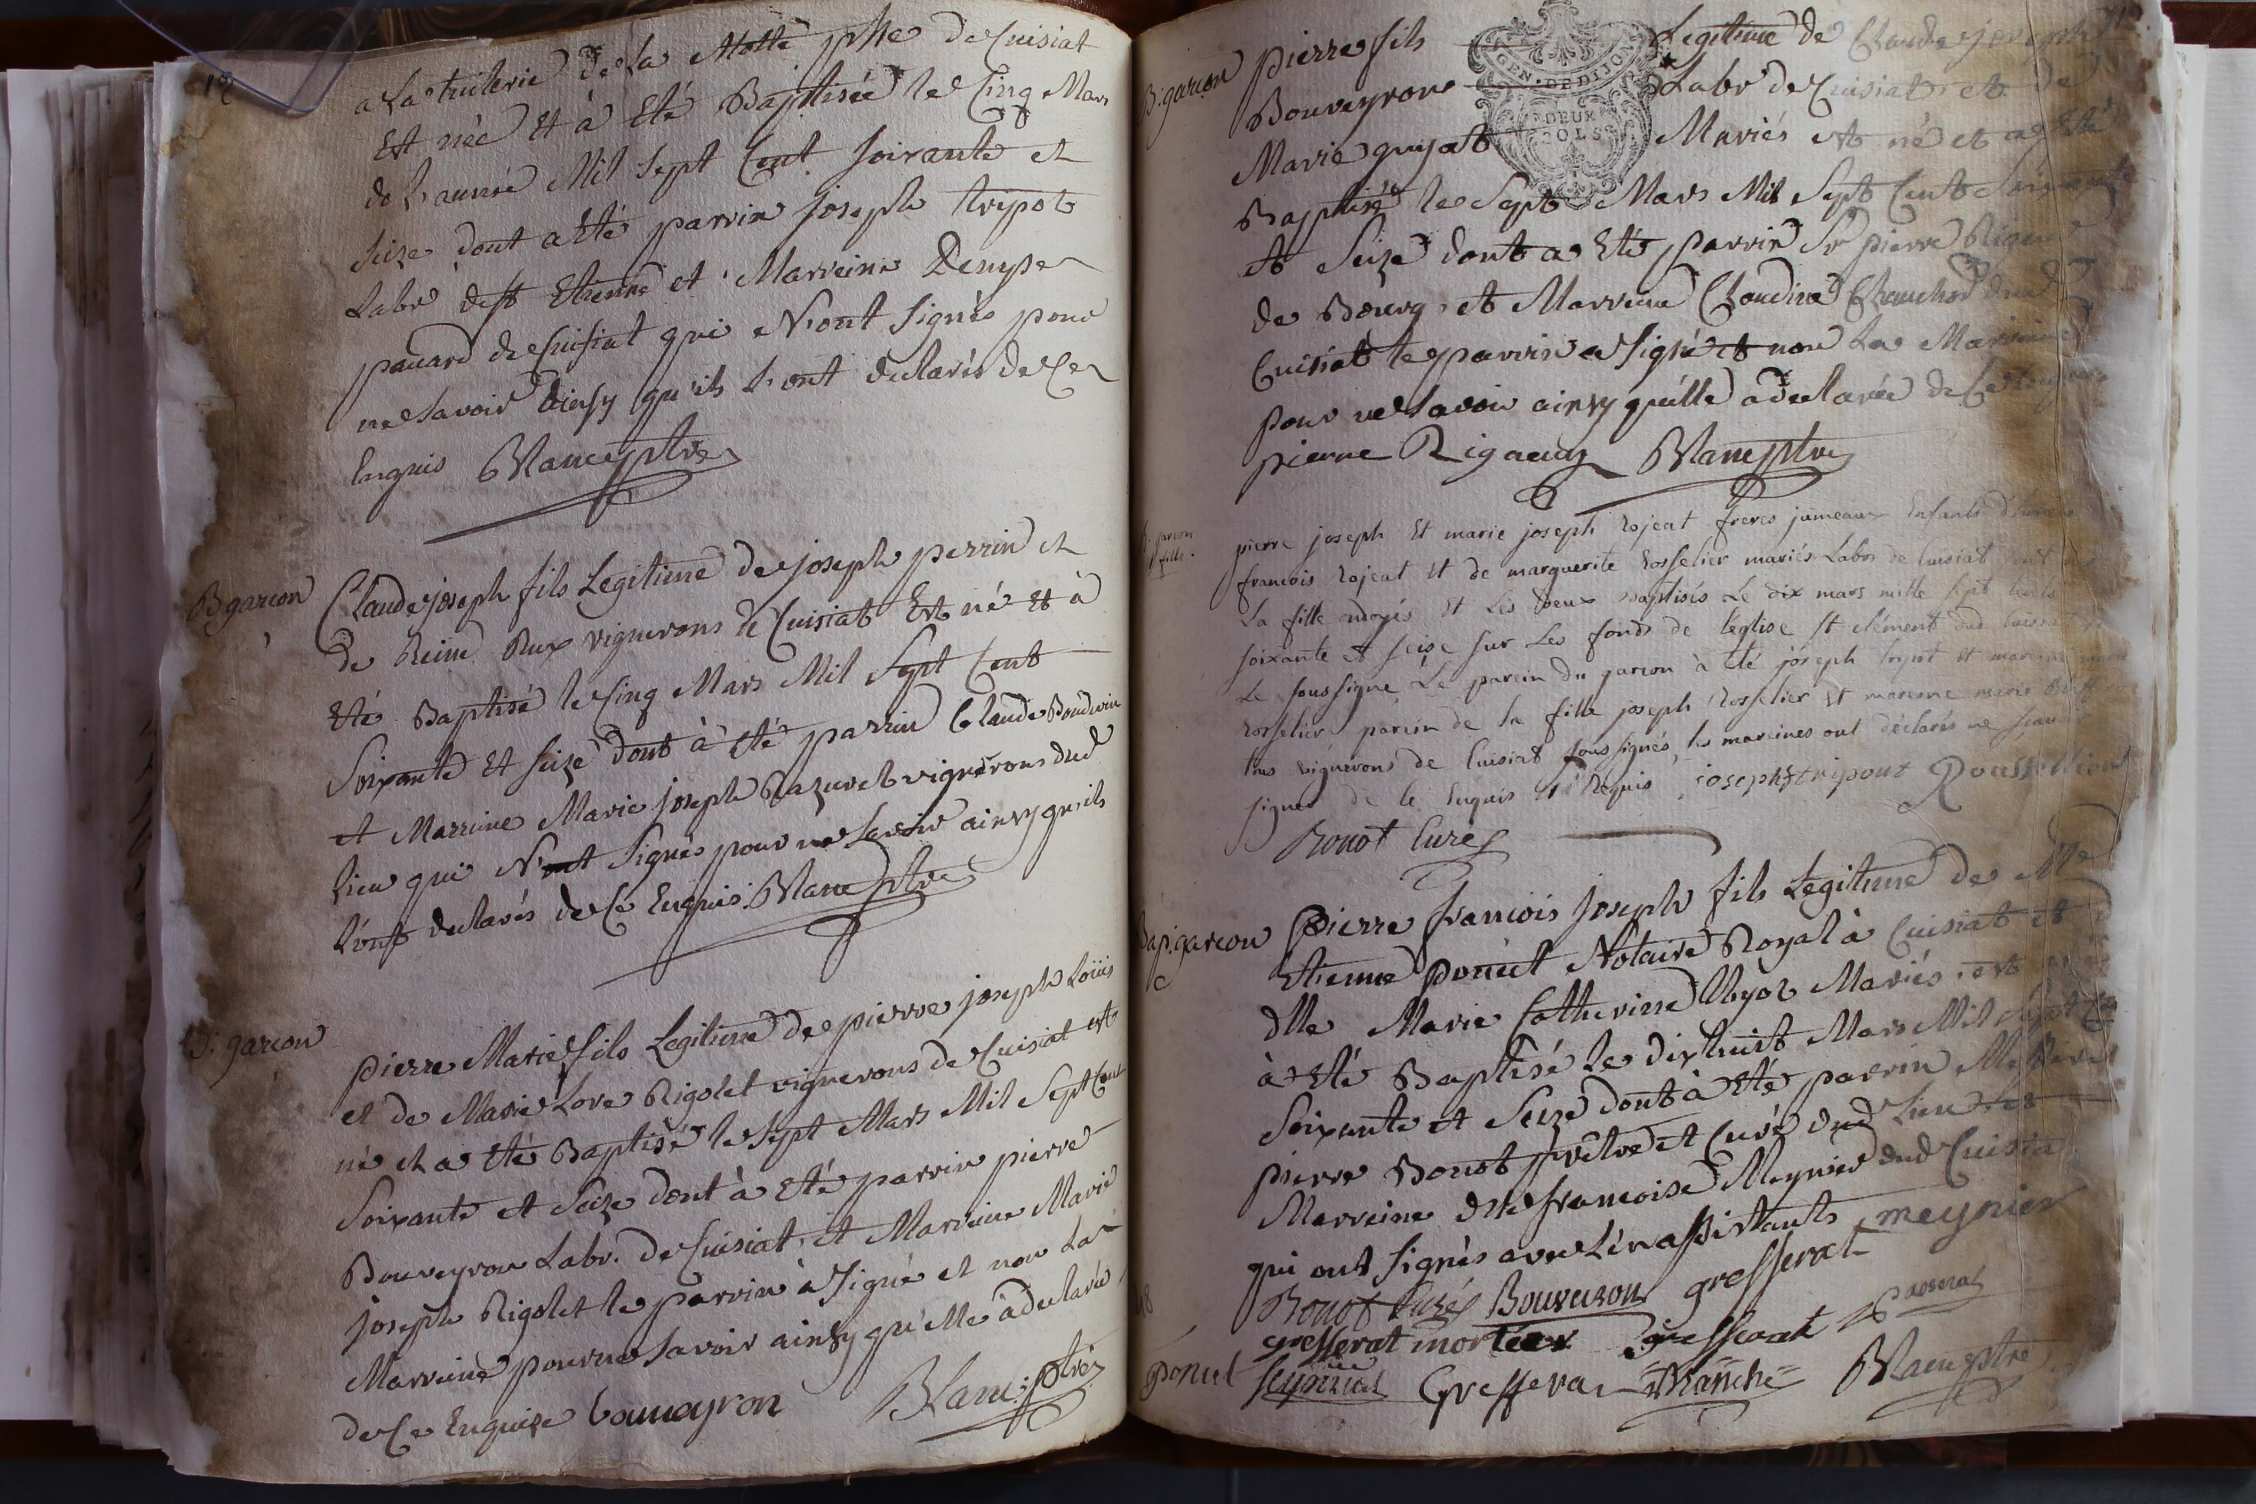 a La tuilerie de La Motte psse de Cuisiat
Est née Et à Eté Baptisée le Cinq Mars
de L'année Mil Sept Cent Soixante et
Seize dont a Eté parrin joseph tripot
Labr de st Etienne et Marreine Denyse
pauard de Cuisiat qui N'ont Signés pour
ne Savoir ainsy qu'ils L'ont declarés de Ce
Enquis Blanc ptre
B garcon
Claude joseph fils Legitime de joseph perrin et
de Reine Rux vignerons de Cuisiat Est né Et à
Eté Baptisé le Cinq Mars Mil Sept Cent
Soixante Et Seize dont à Eté parrin Claude Bouduin
et Marreine Marie joseph Razurel vignerons dud
Lieu qui N'ont Signés pour ne Savoir ainsy qu'ils
L'ont declarés de Ce Enquis. Blanc ptre
B. garcon
pierre Marie fils Legitime de pierre joseph Loüis
et de Marie Lore Rigolet vignerons de Cuisiat est
né et a Eté Baptisé le Sept Mars Mil Sept Cent
Soixante et Seize dont à Eté parrin pierre
Bouveyron Labr. de Cuisiat et Marreine Marie
joseph Rigolet le parrin à Signé et non La
Marreine pour ne Savoir ainsy qu'elle à declarée
de Ce Enquise bouveyron Blanc ptre
B. garcon
pierre fils Legitime de Claude joseph
Bouveyron Labr de Cuisiat et de
Marie guyat Mariés est né et a Eté
Baptisé le Sept Mars Mil Sept Cent Soixante
et Seize dont a Eté parrin Sr pierre Rigaud
de Bourg et Marreine Claudine Chanchon dud
Cuisiat le parrin a Signé et non La Marreine
pour ne Savoir ainsy qu'elle a declarée de Ce Enquise
pierre Rigaud Blanc ptre
GEN. DE DIJON
DEUX
SOLS
B. garcon
fille.
pierre joseph Et marie joseph rojeat freres jumeaux Enfants
francois rojeat et de marguerite rosselier mariés Labrs de Cuisiat
La fille ondoyée et Les deux Baptisés Le dix mars mille sept cents
soixante et seize sur Les fonds de l'eglise st clément dud Cuisiat
Le soussigné Le parein du garcon à été joseph tripot et mareine
rosselier parein de la fille joseph rosselier et mareine marie
tous vignerons de Cuisiat soussignés, les mareines ont déclarés ne scavoir
signer de le Enquis et Requis josepht tripout Rousselion
Bonot Curé
Bap. garcon
pierre francois joseph fils Legitime de Me
Etienne ponut Notaire Royal à Cuisiat et
dlle Marie Catherine Myot Mariés est né
à Eté Baptisé le dix huit Mars Mil Sept Cent
Soixante et Seize dont à Eté parrin
pierre Bonot prêtre et Curé dud Lieu et
Marreine dlle francoise Meynier dud Cuisiat
qui ont Signés avec Les assistants meynier
Bonot Curé Bouveron gresserat
gresserat morteer gresserat
ponut Gresserat Blanche Blanc ptre